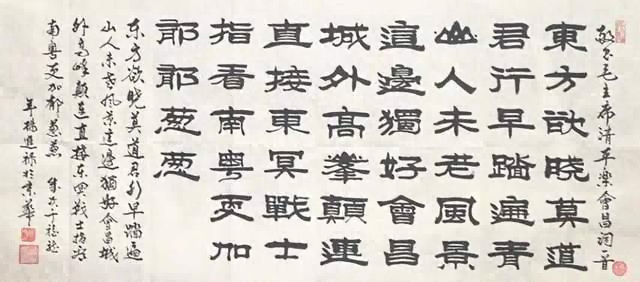 毛主席清平樂會昌詞一首
東方欲曉莫道
君行早踏遍青
山人未老風景
這邊獨好會昌
城外高峯顛連
直接東冥戰士
指看南粤更加
郁郁葱葱
东方欲晓莫道君行早踏遍
山人未老风景這邊獨好會昌城
外高峰顛連直接东冥戰士指看
南粤更加郁葱葱
年楊進禄於京華